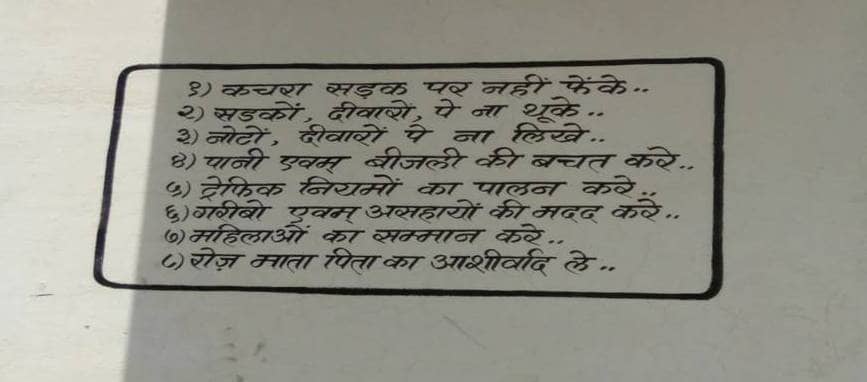 १) कचरा सड़क पर नहीं फेंके..
२) सडकों, दीवारों, पे ना थूके..
३) नोटों, दीवारों पे ना लिखे..
४) पानी एवम् बीजली की बचत करे..
५) ट्रेफिक नियमों का पालन करे..
६) गरीबो एवम् असहायों की मदद करे..
७) महिलाओं का सम्मान करे..
८) रोज़ माता पिता का आशीर्वाद ले..